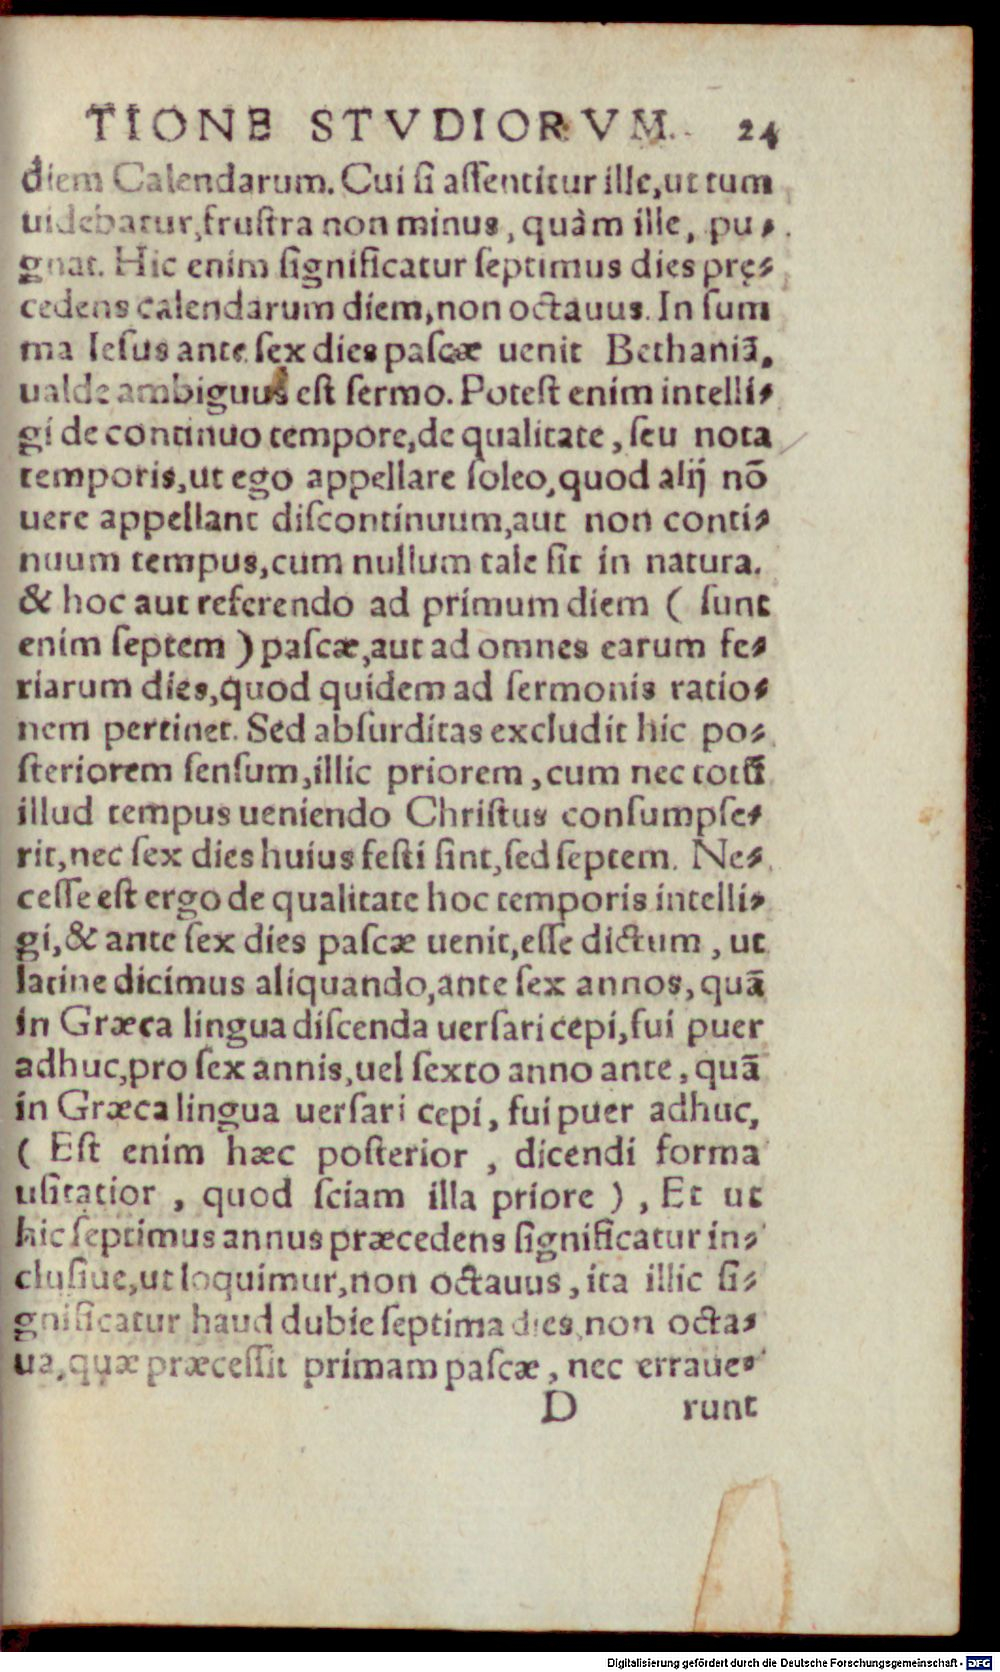 TIONE STVDIORVM. 24
diem Calendarum. Cui ſi aſſentitur ille, ut tum
uidebatur, fruſtra non minus, quàm ille, pu-
gnat. Hic enim ſignificatur ſeptimus dies prę-
cedens calendarum diem, non octauus. In ſum
ma Ieſus ante ſex dies paſcæ uenit Bethaniā,
ualde ambiguus eſt ſermo. Poteſt enim intelli-
gi de continuo tempore, de qualitate, ſeu nota
temporis, ut ego appellare ſoleo, quod alij nō
uere appellant diſcontinuum, aut non conti-
nuum tempus, cum nullum tale ſit in natura.
& hoc aut referendo ad primum diem ( ſunt
enim ſeptem ) paſcæ, aut ad omnes earum fe-
riarum dies, quod quidem ad ſermonis ratio-
nem pertinet. Sed abſurditas excludit hic po-
ſteriorem ſenſum, illic priorem, cum nec totū
illud tempus ueniendo Chriſtus conſumpſe-
rit, nec ſex dies huius feſti ſint, ſed ſeptem. Ne-
ceſſe eſt ergo de qualitate hoc temporis intelli-
gi, & ante ſex dies paſcæ uenit, eſſe dictum, ut
latine dicimus aliquando, ante ſex annos, quā
in Græca lingua diſcenda uerſari cepi, fui puer
adhuc, pro ſex annis, uel ſexto anno ante, quā
in Græca lingua uerſari cepi, fui puer adhuc,
( Eſt enim hæc poſterior, dicendi forma
uſitatior, quod ſciam illa priore ), Et ut
hic ſeptimus annus præcedens ſignificatur in-
cluſiue, ut loquimur, non octauus, ita illic ſi-
gnificatur haud dubie ſeptima dies, non octa-
ua, quæ præceſſit primam paſcæ, nec erraue-
D runt
Digitalisierung gefördert durch die Deutsche Forschungsgemeinschaft - DFG